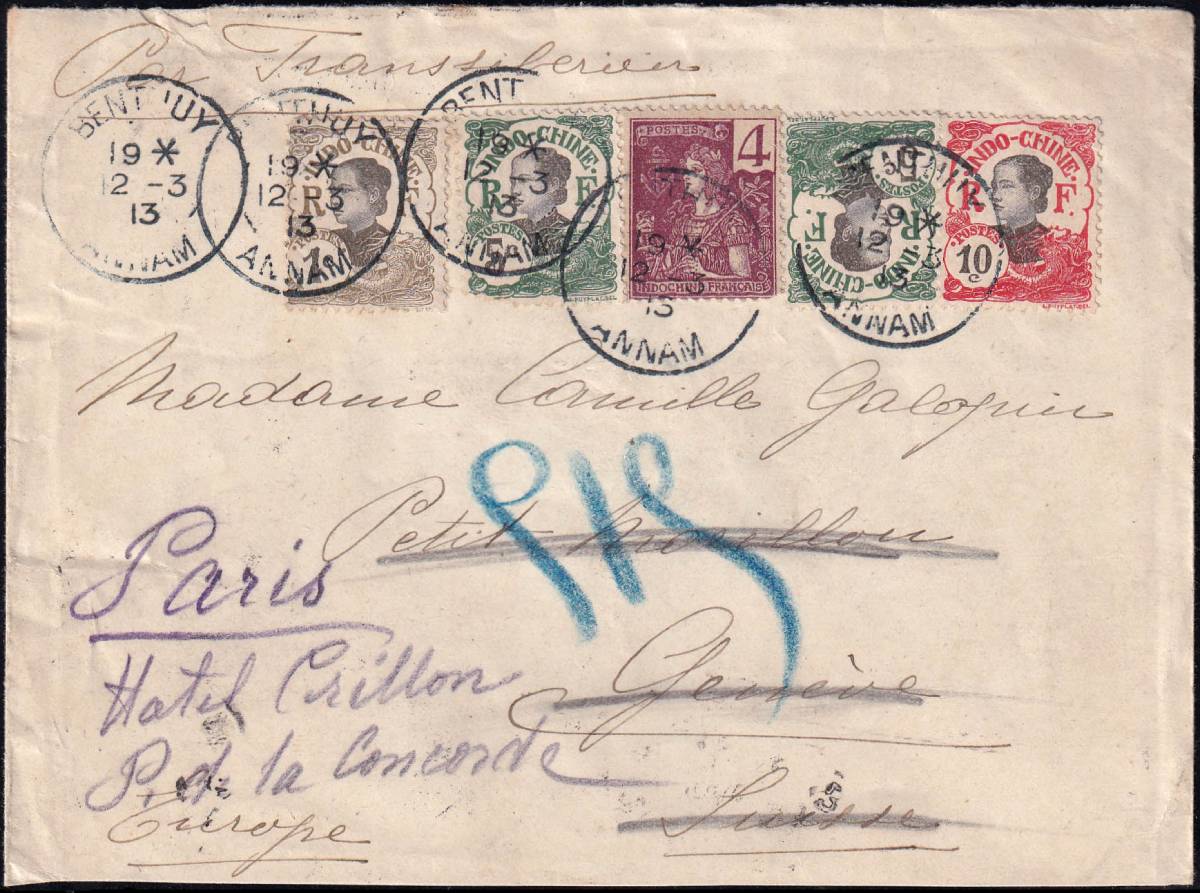 Par Transsibérien
BENTHUY
19 *
12 -3
13
ANNAM
BENTHUY
19 *
12 -3
13
ANNAM
INDO-CHINE
R
POSTES
1
BENT
19 *
12 -3
13
ANNAM
INDO-CHINE
R F
POSTES
5
POSTES 4
INDOCHINE FRANÇAISE
19 *
12 -3
13
ANNAM
INDO-CHINE
R F
POSTES
5
19 *
12 -3
13
ANNAM
INDO-CHINE
R F.
POSTES
10 c
Madame Camille Galopin
Petit
Genève
Suisse
Europe
Paris
Hotel Crillon
P. de la Concorde